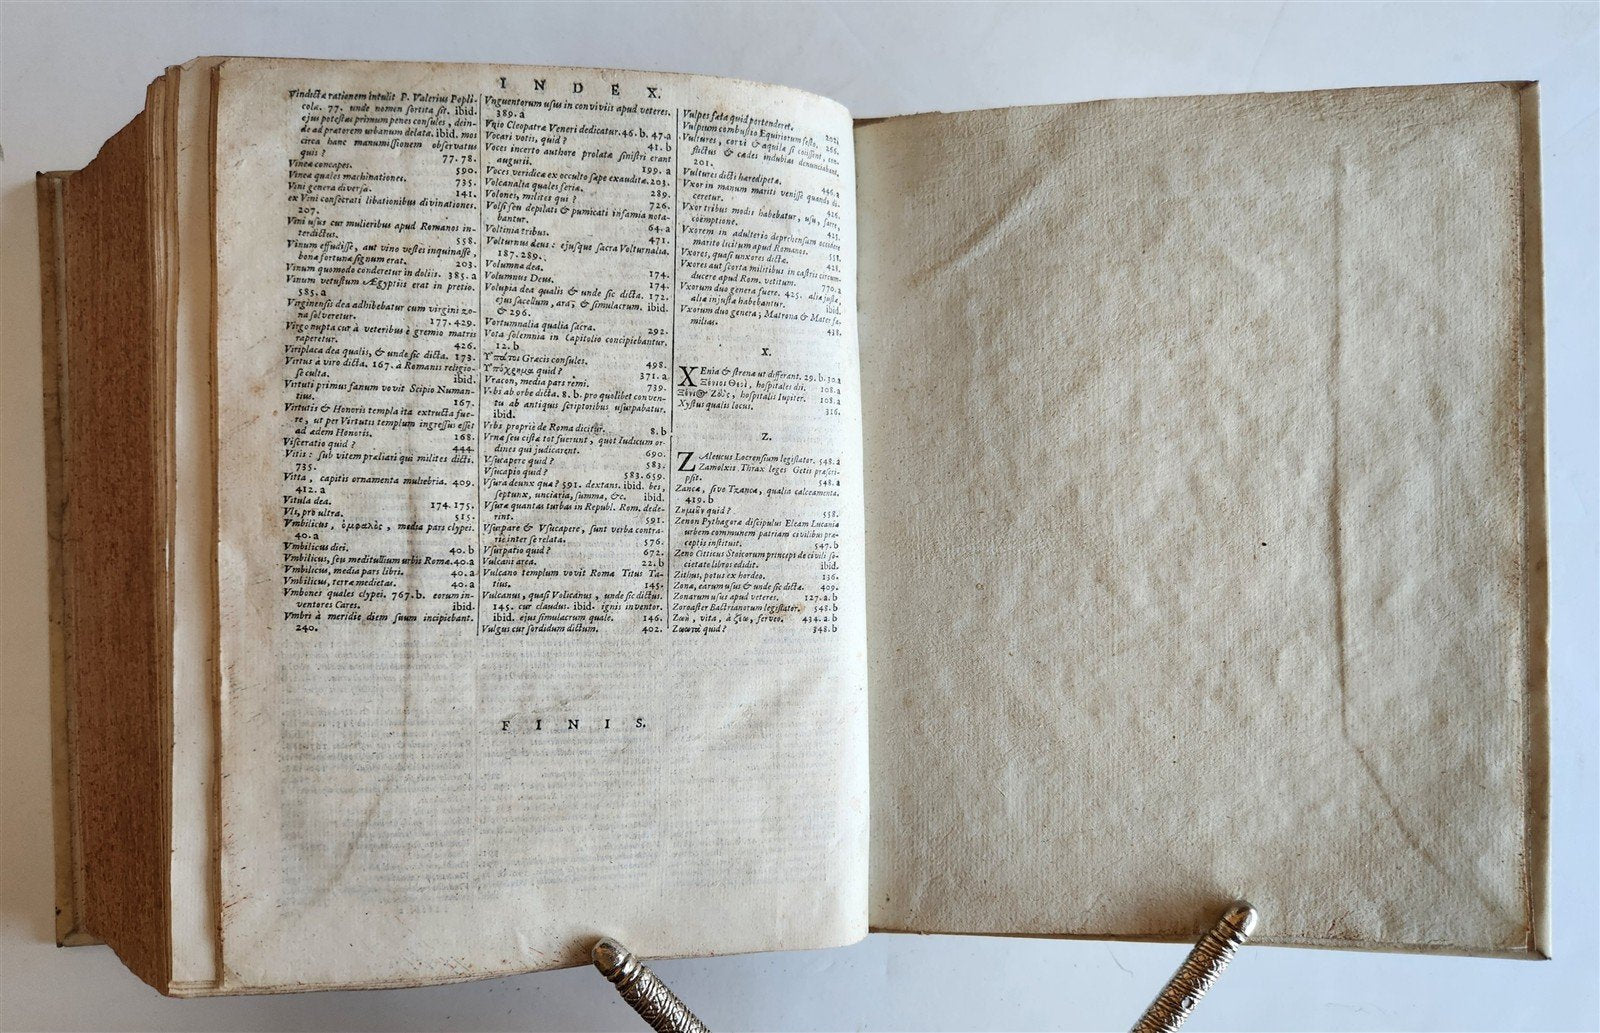 INDEX.
Vindictæ rationem intulit P. Valerius Popli-
colæ. 77. unde nomen sortita sit. ibid.
ejus potestas primum penes consules, dein-
de ad prætorem urbanum delata. ibid. mos
circa hanc manumissionem observatus
quis? 77.78.
Vineæ concapes. 590.
Vineæ quales machinationes. 735.
Vini genera diversa. 141.
ex Vini consecrati libationibus divinationes.
207.
Vini usus cur mulieribus apud Romanos in-
terdictus. 558.
Vinum effudisse, aut vino vestes inquinasse,
bonæ fortunæ signum erat. 203.
Vinum quomodo conderetur in doliis. 385.a
Vinum vetustum Ægyptiis erat in pretio.
585.a
Virginensis dea adhibebatur cum virgini zo-
na solveretur. 177.429.
Virgo nupta cur à veteribus è gremio matris
raperetur. 426.
Viriplaca dea qualis, & unde sic dicta. 173.
Virtus à viro dicta. 167. à Romanis religio-
se culta. ibid.
Virtuti primus fanum vovit Scipio Numan-
tius. 167.
Virtutis & Honoris templa ita extructa fue-
re, ut per Virtutis templum ingressus esset
ad ædem Honoris. 168.
Visceratio quid? 444
Vitis: sub vitem præliari qui milites dicti.
735.
Vitta, capitis ornamenta muliebria. 409.
412.a
Vitula dea. 174.175.
Vls, pro ultra. 515.
Vmbilicus, ὀμφαλὸς, media pars clypei.
40.a
Vmbilicus diei. 40.b
Vmbilicus, seu meditullium urbis Romæ. 40.a
Vmbilicus, media pars libri. 40.a
Vmbilicus, terræ medietas. 40.a
Vmbones quales clypei. 767.b. eorum in-
ventores Cares. ibid.
Vmbri à meridie diem suum incipiebant.
240.
Vnguentorum usus in conviviis apud veteres.
389.a
Vnio Cleopatræ Veneri dedicatur. 46.b. 47.a
Vocari votis, quid? 41.b
Voces incerto authore prolatæ sinistri erant
augurii. 199.a
Voces veridicæ ex occulto sæpe exauditæ. 203.
Volcanalia quales feriæ. 289.
Volones, milites qui? 726.
Volsi seu depilati & pumicati infamia nota-
bantur. 64.a
Voltinia tribus. 471.
Volturnus deus: ejusque sacra Volturnalia.
187.289.
Volumna dea. 174.
Volumnus Deus. 174.
Volupia dea qualis & unde sic dicta. 172.
ejus sacellum, aras & simulacrum. ibid.
& 296.
Vortumnalia qualia sacra. 292.
Vota solemnia in Capitolio concipiebantur.
12.b
Ὕπατοι Græcis consules. 498.
Ὑπόχημα quid? 371.a
Vracon, media pars remi. 739.
Vrbi ab orbe dicta. 8.b. pro quolibet conven-
tu ab antiquis scriptoribus usurpabatur.
ibid.
Vrbs proprie de Roma dicitur. 8.b
Vrnæ seu cistæ tot fuerunt, quot Iudicum or-
dines qui judicarent. 690.
Vsucapere quid? 583.
Vsucapio quid? 583.659.
Vsura deunx quæ? 591. dextans. ibid. bes,
septunx, unciaria, summa, &c. ibid.
Vsuræ quantas turbas in Republ. Rom. dede-
rint. 591.
Vsurpare & Vsucapere, sunt verba contra-
rie inter se relata. 576.
Vsurpatio quid? 672.
Vulcani area. 22.b
Vulcano templum vovit Roma Titus Ta-
tius. 145.
Vulcanus, quasi Volicanus, unde sic dictus.
145. cur claudus. ibid. ignis inventor.
ibid. ejus simulacrum quale. 146.
Vulgus cur sordidum dictum. 402.
Vulpes fæta quid portenderet. 202.
Vulpium combustio Equiriorum festo. 266.
Vultures, corvi & aquilæ si coissent, con-
flictus & cædes indubias denunciabant.
201.
Vultures dicti hæredipetæ. 446.a
Vxor in manum mariti venisse quando di-
ceretur. 426.
Vxor tribus modis habebatur, usu, farre,
coëmptione. 425.
Vxorem in adulterio deprehensam occidere
marito licitum apud Romanos. 551.
Vxores, quasi unxores dictæ. 428.
Vxores aut scorta militibus in castris circum-
ducere apud Rom. vetitum. 770.a
Vxorum duo genera fuere. 425. aliæ justæ,
aliæ injustæ habebantur. ibid.
Vxorum duo genera; Matrona & Mater fa-
milias. 438.
X.
XEnia & strenæ ut differant. 29.b.30.a
Ξένιοι Θεοὶ, hospitales dii. 108.a
Ξένιος Ζεὺς, hospitalis Iupiter. 108.a
Xystus qualis locus. 316.
Z.
ZAleucus Locrensium legislator. 548.a
Zamolxis. Thrax leges Getis præscri-
psit. 548.a
Zancæ, sive Tzancæ, qualia calceamenta.
419.b
quid? 558.
Zenon Pythagoræ discipulus Eleam Lucaniæ
urbem communem patriam civilibus præ-
ceptis instituit. 547.b
Zeno Citticus Stoicorum princeps de civili so-
cietate libros edidit. ibid.
Zithus, potus ex hordeo. 136.
Zonæ, earum usus & unde sic dicta. 409.
Zonarum usus apud veteres. 127.a.b
Zoroaster Bactrianorum legislator. 548.b
Ζωὴ, vita, à ζέω, ferveo. 434.a.b
quid? 348.b
FINIS.